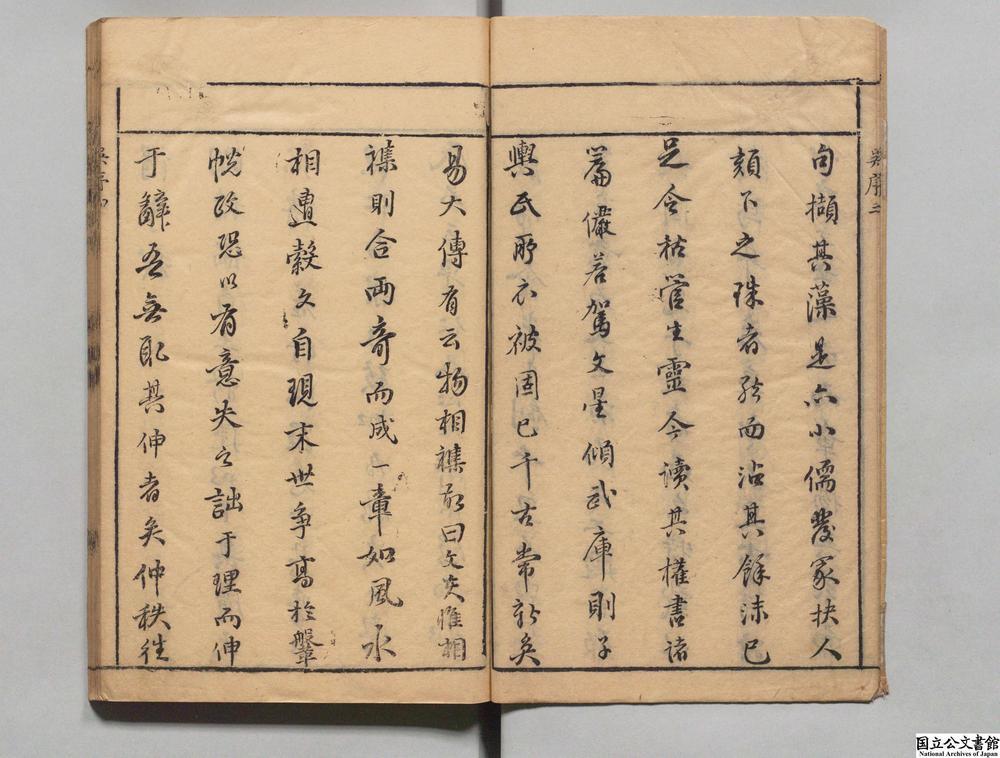 句擷其藻是亦小儒發冢抉人
頰下之珠者然而沾其餘沫已
足令枯管生靈今讀其權書諸
篇儼若駕文星傾武庫則子
輿氏所衣被固已千古常新矣
易大傳有云物相襍故曰文夫惟相
襍則合兩奇而成一章如風水
相遭縠文自現末世爭高於鞶
帨政恐以有意失之詘于理而伸
于辭吾無取其伸者矣仲秩從
吳序二
吳序四
国立公文書館
National Archives of Japan